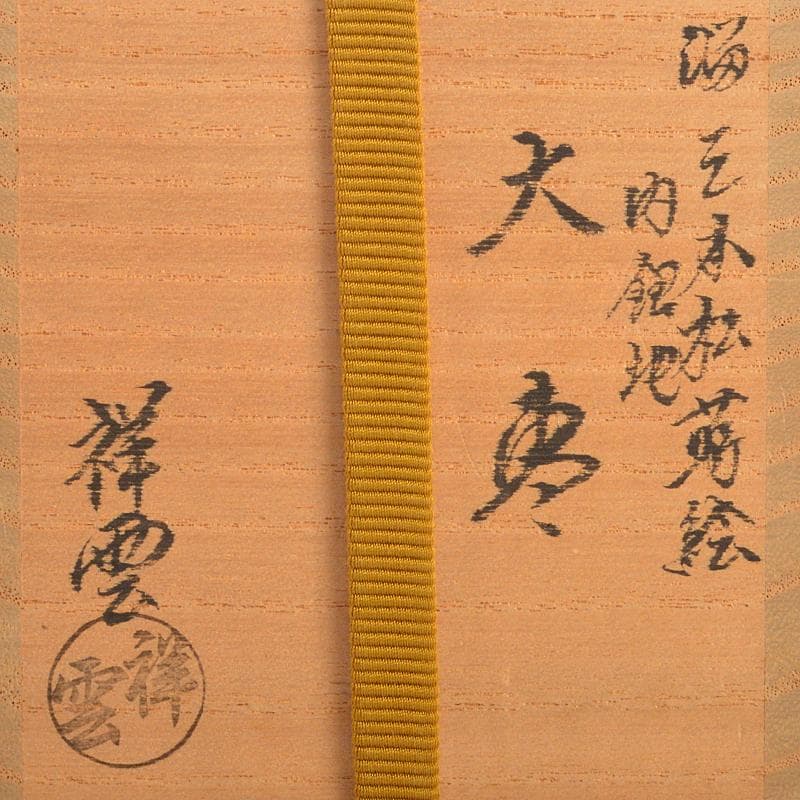 溜 三本松蒔絵
内銀地
大棗
祥雲
祥雲